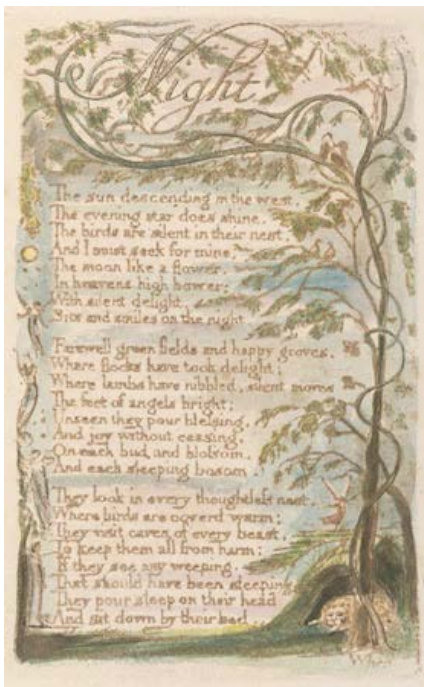 Night
The sun descending in the west.
The evening star does shine.
The birds are silent in their nest,
And I must seek for mine,
The moon like a flower,
In heavens high bower;
With silent delight,
Sits and smiles on the night.
Farewell green fields and happy groves,
Where flocks have took delight;
Where lambs have nibbled, silent moves
The feet of angels bright;
Unseen they pour blessing,
And joy without ceasing,
On each bud and blossom,
And each sleeping bosom.
They look in every thoughtless nest,
Where birds are coverd warm;
They visit caves of every beast,
To keep them all from harm;
If they see any weeping,
That should have been sleeping
They pour sleep on their head
And sit down by their bed.